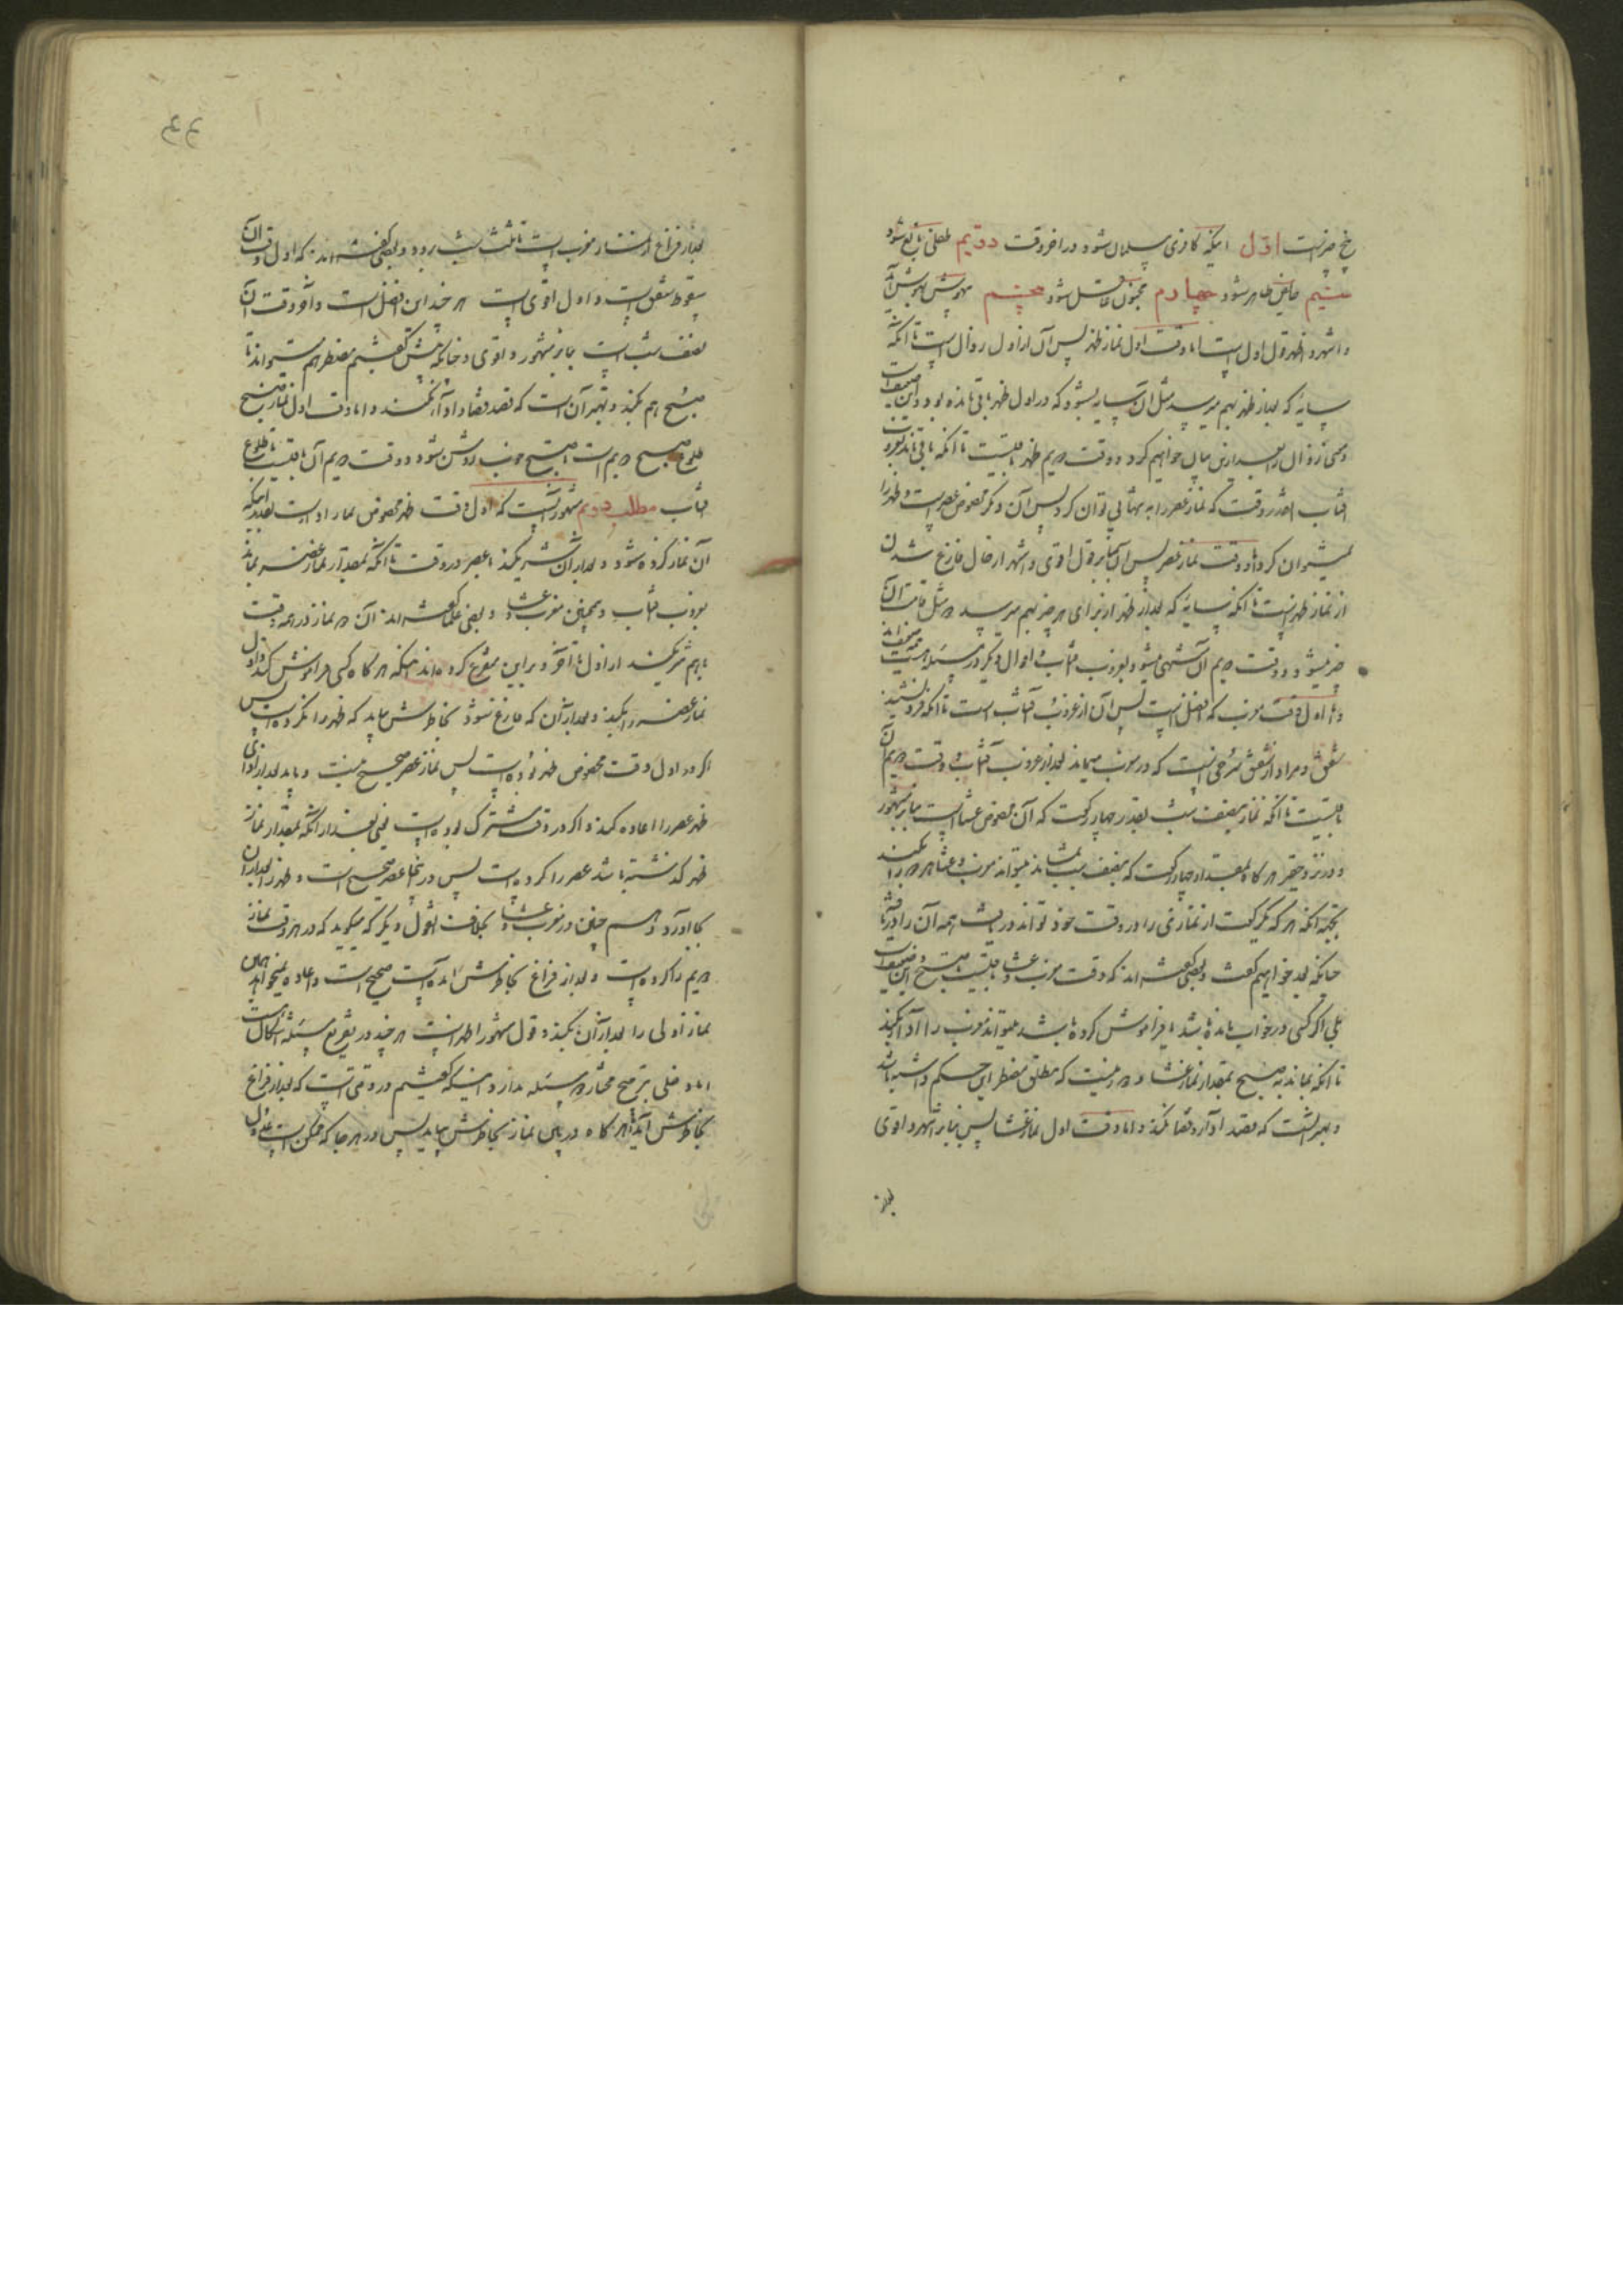 پنج چیز است اول اینکه کافری مسلمان شود در اخر وقت دویم طفلی بالغ شود
سیم حایض طاهر شود چهارم مجنون عاقل شود پنجم بیهوش بهوش آید
و اشهر و اظهر قول اول است اما وقت اول نماز ظهر پس آن از اول زوال است تا انکه
سایهٔ که بعد از ظهر بهم میرسد مثل آن سایه بشود که در اول ظهر باقی مانده بود و این ضعیف است
و معنی زوال را بعد ازین بیان خواهیم کرد و وقت دویم ظهر باقیست تا انکه باقی ماند بغروب
افتاب انقدر وقت که نماز عصر را به تنهائی توان کرد و پس آن دیگر مخصوص عصر است و ظهر را
نمیتوان کرد و اما وقت نماز عصر پس آن بنابر قول اقوی و اشهر از حال فارغ شدن
از نماز ظهر است تا انکه سایهٔ که بعد از ظهر از برای هر چیز بهم میرسد دو مثل قامت آن
چیز میشود و وقت دویم آن منتهی میشود بغروب افتاب و اقوال دیگر در مسئله هست ضعیف‌اند
و اما اول وقت مغرب که افضل است پس آن از غروب آفتاب است تا انکه فرو نشیند
شفق و مراد از شفق سرخی است که در مغرب میماند بعد از غروب آفتاب و وقت دویم آن
باقیست تا انکه بماند بنصف شب بقدر چهار رکعت که آن مخصوص عشا است بنابر مشهور
و در نزد حقیر هر کاه بمقدار چهار رکعت که بنصف شب بماند میتواند مغرب و عشا هر دو را بکند
بجهة انکه هر که یکرکعت از نمازی را در وقت خود تواند دریافت همه آن را دریافته
چنانکه بعد خواهیم کفت و بعضی کفته‌اند که وقت مغرب و عشا باقیست تا صبح و این ضعیف است
بلی اکر کسی در خواب مانده باشد یا فراموش کرده باشد میتواند مغرب را ادا بکند
تا انکه بماند به صبح بمقدار نماز عشا و دور نیست که مطلق مضطر این حکم داشته باشد
و بهتر انست که قصد ادا و قضا نکند و اما وقت اول نماز عشا پس بنابر اشهر و اقوی
بعد از
۴۴
بعد از فراغ از نماز مغرب است تا ثلث شب برود و بعضی کفته‌اند که اول وقت آن
سقوط شفق است و اول اقوی است هر چند این افضل است و آخر وقت آن
نصف شب است بنابر مشهور و اقوی و چنانکه پیش کفتیم مضطر هم میتواند تا
صبح هم بکند و بهتر آن است که قصد قضا و ادا نکند و اما وقت اول نماز صبح
طلوع صبح دویم است تا صبح خوب روشن شود و وقت دویم آن باقیست تا طلوع
افتاب مطلب دویم مشهور آنست که اول وقت ظهر مخصوص نماز او است بقدر اینکه
آن نماز کرده شود و بعد از آن شریکند با عصر در وقت تا انکه بمقدار نماز عصر بماند
بغروب افتاب و همچنین مغرب و عشا و بعضی علما کفته‌اند آن دو نماز در همه وقت
باهم شریکند از اول تا آخر و بر این متفرع کرده‌اند اینکه هر کاه کسی فراموش کند و اول
نماز عصر را بکند و بعد از آن که فارغ شود بخاطرش بیاید که ظهر را نکرده است پس
اکر در اول وقت مخصوص ظهر بوده است پس نماز عصر صحیح نیست و باید بعد از ادای
ظهر عصر را اعاده کند و اکر در وقت مشترک بوده است یعنی بعد از انکه بمقدار نماز
ظهر کذشته باشد عصر را کرده است پس در انجا عصر صحیح است و ظهر را بعد از آن
بجا اورد و همچنین در مغرب و عشا بخلاف قول دیگر که میکوید که در هر وقت نماز
دویم را کرده است و بعد از فراغ بخاطرش آمده است صحیح است و اعاده نمیخواهد همان
نماز اولی را بعد از آن بکند و قول مشهور اظهر است هر چند در تفریع مسئله اشکال است
اما دخلی بترجیح مختار در مسئله ندارد و اینکه کفتیم در وقتی است که بعد از فراغ
بخاطرش آید اما هر کاه در بین نماز بخاطرش بیاید پس در هر جا که ممکن است عدول